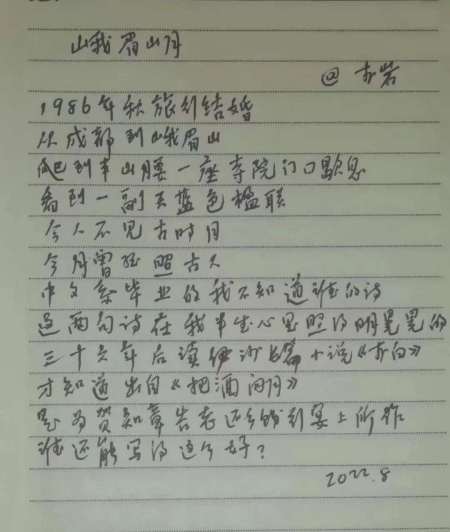 峨眉山月
@ 赤岩
1986年秋旅行结婚
从成都到峨眉山
爬到半山腰一座寺院门口歇息
看到一副天蓝色楹联
今人不见古时月
今月曾经照古人
中文系毕业的我不知道谁的诗
这两句诗在我半生心里照的明晃晃的
三十六年后读沙长篇小说《李白》
才知道出自《把酒问月》
是为贺知章告老还乡饯别宴上所作
谁还能写得这么好？
2022.8